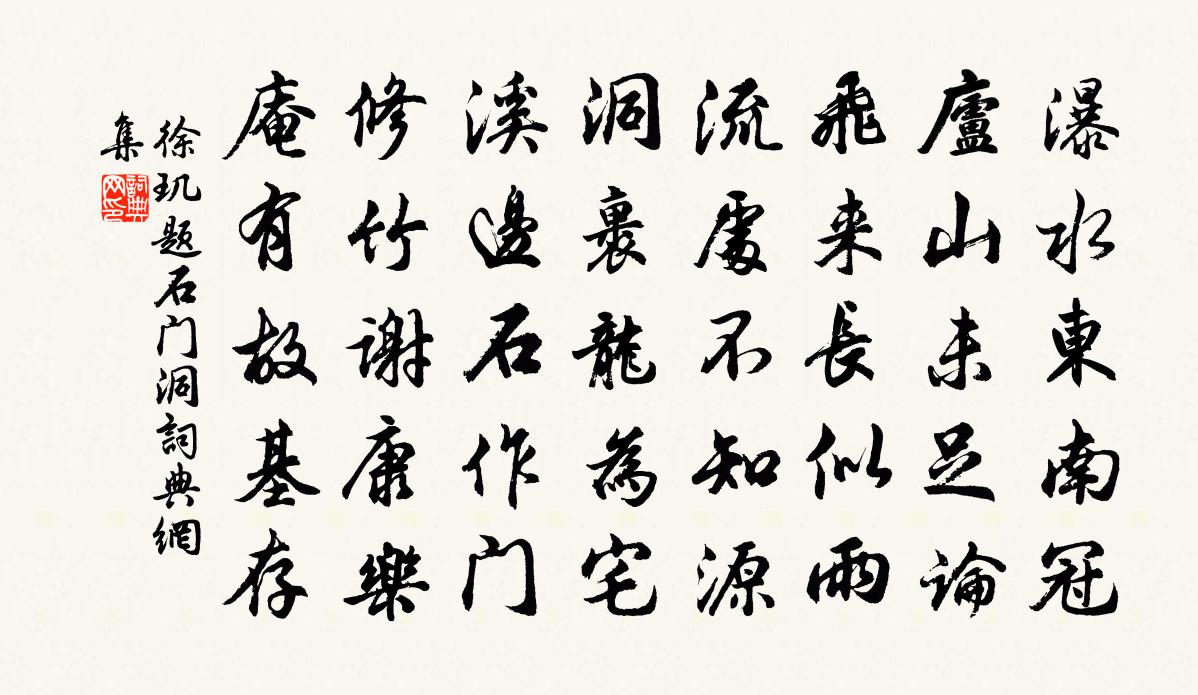 瀑水東南冠
廬山未足論
飛来長似雨
流處不知源
洞裏龍為宅
溪邊石作门
修竹謝康樂
庵有故基存
徐玑题石门洞詞典網
集
詞典
网印